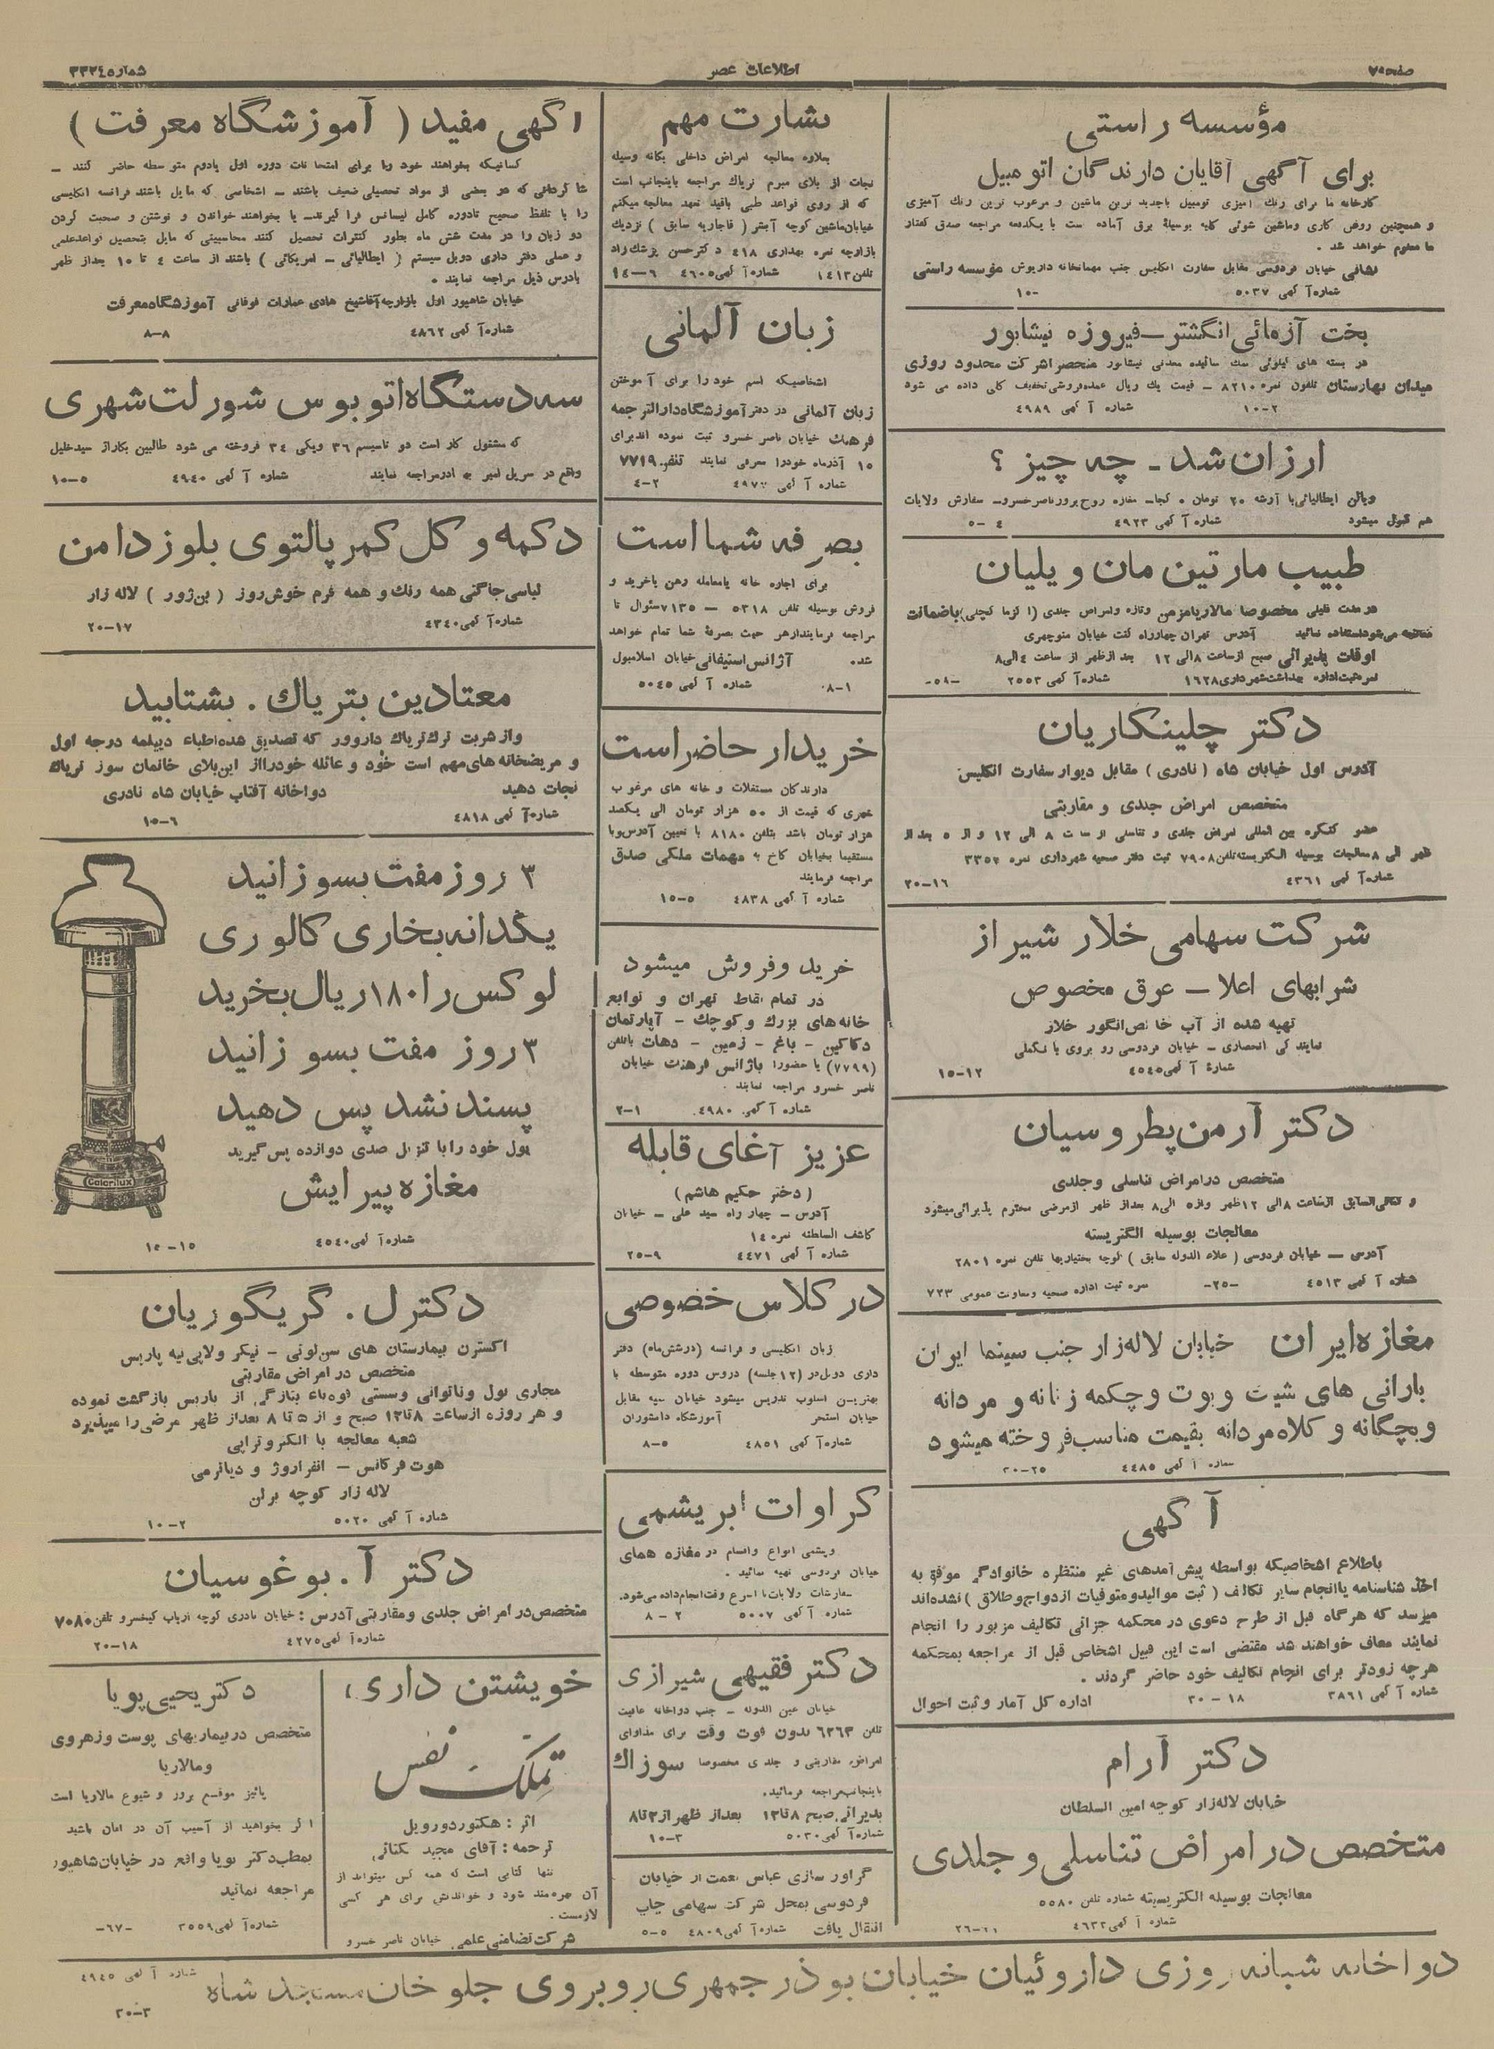 صفحه ۷
اطلاعات عصر
شماره ۳۳۲۴
مؤسسه راستی
برای آگهی آقایان دارندگان اتومبیل
کارخانه ما برای رنگ آمیزی اتومبیل باجدید ترین ماشین و مرغوب ترین رنگ آمیزی
و همچنین روغن کاری وماشین شوئی کلیه بوسیلهٔ برق آماده است با یکدفعه مراجعه صدق گفتار
ما معلوم خواهد شد .
نشانی خیابان فردوسی مقابل سفارت انگلیس جنب مهمانخانه داریوش مؤسسه راستی
شماره آگهی ۵۰۳۷ ۱۰-
بخت آزمائی انگشتر–فیروزه نیشابور
در بسته های کیلوئی سنک سائیده معدنی نیشابور منحصرا شرکت محدود روزی
میدان بهارستان تلفون نمره ۸۲۱۰ – قیمت یك ریال عمده فروشی تخفیف کلی داده می شود
شماره آ گهی ۴۹۸۹ ۲–۱۰
ارزان شد – چه چیز ؟
ویالن ایطالیائی با آرشه ۲۰ تومان . کجا– مغازه روح پرور ناصرخسرو– سفارش ولایات
هم قبول میشود شماره آ گهی ۴۹۲۳ ۴–۵
طبیب مارتین مان ویلیان
در مدت قلیلی مخصوصا مالاریا مزمن وتازه وامراض جلدی (اگزما کچلی) باضمانت
معالجه می شود استفاده نمائید آدرس تهران چهارراه کنت خیابان منوچهری
اوقات پذیرائی صبح ازساعت ۸ الی ۱۲ بعد ازظهر از ساعت ۴ الی ۸
نمره ثبت اداره بهداشت شهرداری ۱۶۲۸ شماره آ گهی ۲۵۵۳ –۵۹–
دکتر چلینگاریان
آدرس اول خیابان شاه (نادری) مقابل دیوار سفارت انگلیس
متخصص امراض جلدی و مقاربتی
عضو کنگره بین المللی امراض جلدی و تناسلی از ساعت ۸ الی ۱۲ و از ۵ بعد از
ظهر الی ۸ معالجات بوسیله الکتریسته تلفن ۷۹۰۸ ثبت دفتر صحیه شهرداری نمره ۳۳۵۷
شماره آ گهی ۴۳۶۱ ۱۶–۲۰
شرکت سهامی خلار شیراز
شرابهای اعلا – عرق مخصوص
تهیه شده از آب خالص انگور خلار
نمایندگی انحصاری – خیابان فردوسی رو بروی بانک ملی
شمارهٔ آ گهی ۴۵۴۵ ۱۲–۱۵
دکتر آرمن پطروسیان
متخصص در امراض تناسلی و جلدی
و کمافی السابق از ساعت ۸ الی ۱۲ ظهر و از ۵ الی ۸ بعد از ظهر ازمرضی محترم پذیرائی میشود
معالجات بوسیله الکتریسته
آدرس – خیابان فردوسی (علاء الدوله سابق) کوچه بختیاریها تلفن نمره ۲۸۰۱
شماره آ گهی ۴۵۱۳ –۲۵– نمره ثبت اداره صحیه ومعاونت عمومی ۷۲۳
مغازه ایران خیابان لاله زار جنب سینما ایران
بارانی های شیک وبوت وچکمه زنانه و مردانه
وبچگانه و کلاه مردانه بقیمت مناسب فروخته میشود
شماره آ گهی ۴۴۸۵ ۲۵–۳۰
آ گهی
باطلاع اشخاصیکه بواسطه پیش آمدهای غیر منتظره خانوادگی موفق به
اخذ شناسنامه یا انجام سایر تکالف (ثبت موالید ومتوفیات ازدواج وطلاق) نشده اند
میرسد که هرگاه قبل از طرح دعوی در محکمه جزائی تکالیف مزبور را انجام
نمایند معاف خواهند شد مقتضی است این قبیل اشخاص قبل از مراجعه بمحکمه
هرچه زودتر برای انجام تکالیف خود حاضر گردند .
شماره آ گهی ۳۸۶۱ ۱۸–۳۰ اداره کل آمار و ثبت احوال
دکتر آرام
خیابان لاله زار کوچه امین السلطان
متخصص در امراض تناسلی و جلدی
معالجات بوسیله الکتریسیته شماره تلفن ۵۵۸۰
شماره آ گهی ۴۶۳۲
بشارت مهم
بعلاوه معالجه امراض داخلی یگانه وسیله
نجات از بلای مبرم تریاک مراجعه باینجانب است
که از روی قواعد طبی باقید تعهد معالجه میکنم
خیابان ماشین کوچه آبشر (قاجاریه سابق) نزدیک
بازارچه نمره بهداری ۴۱۸ دکتر حسن پزشك زاد
تلفن ۱۴۱۳ شماره آ گهی ۴۶۰۵ ۶–۱۴
زبان آلمانی
اشخاصیکه اسم خود را برای آموختن
زبان آلمانی در دفتر آموزشگاه دارالترجمه
فرهنك خیابان ناصر خسرو ثبت نموده اند برای
۱۵ آذرماه خودرا معرفی نمایند تلفن ۷۷۱۹
شماره آ گهی ۴۹۷۲ ۲–۴
بصرفه شما است
برای اجاره خانه یا معامله رهن یاخرید و
فروش بوسیله تلفن ۵۳۱۸ – ۷۱۳۵ سئوال تا
مراجعه فرمایند از هر حیث بصرفهٔ شما تمام خواهد
شد . آژانس استیفانی خیابان اسلامبول
شماره آ گهی ۵۰۴۵ ۱–۸
خریدار حاضر است
دارندگان مستغلات و خانه های مرغوب
شهری که قیمت از ۵۰ هزار تومان الی یکصد
هزار تومان باشد بتلفن ۸۱۸۰ با تعیین آدرس ویا
مستقیما بخیابان کاخ به مهمات ملکی صدق
مراجعه فرمایند
شماره آ گهی ۴۸۳۸ ۵–۱۵
خرید و فروش میشود
در تمام نقاط تهران و توابع
خانه های بزرك و کوچك – آپارتمان
دکاکین – باغ – زمین – دهات باتلفن
(۷۷۹۹) یا حضورا باژانس فرهنك خیابان
ناصر خسرو مراجعه نمایند .
شماره آ گهی ۴۹۸۰ ۱–۲
عزیز آغای قابله
(دختر حکیم هاشم)
آدرس – چهار راه سید علی – خیابان
کاشف السلطنه نمره ۱۴
شماره آ گهی ۴۴۷۱ ۹–۲۵
در کلاس خصوصی
زبان انگلیسی و فرانسه (در شش ماه) دفتر
داری دوبل در (۱۲ جلسه) دروس دوره متوسطه با
بهترین اسلوب تدریس میشود خیابان سپه مقابل
خیابان استخر آموزشگاه داستوران
شماره آ گهی ۴۸۵۱ ۵–۸
کراوات ابریشمی
وپشمی انواع واقسام در مغازه همای
خیابان فردوسی تهیه نمائید .
سفارشات ولایات با اسرع وقت انجام داده می شود.
شماره آ گهی ۵۰۰۷ ۲–۸
دکتر فقیهی شیرازی
خیابان عین الدوله – جنب دواخانه عافیت
تلفن ۶۲۶۳ بدون فوت وقت برای مداوای
امراض مقاربتی و جلدی مخصوصا سوزاك
باینجانب مراجعه فرمائید.
پذیرائی صبح ۸ تا ۱۲ بعد از ظهر از ۳ تا ۸
شماره آ گهی ۵۰۳۰ ۳–۱۰
گراور سازی عباس نعمت از خیابان
فردوسی بمحل شرکت سهامی چاپ
انتقال یافت شماره آ گهی ۴۸۰۹ ۵–۵
آگهی مفید (آموزشگاه معرفت)
کسانیکه بخواهند خود را برای امتحانات دوره اول یادوم متوسطه حاضر کنند –
شاگردانی که در بعضی از مواد تحصیلی ضعیف باشند – اشخاصی که مایل باشند فرانسه انگلیسی
را با تلفظ صحیح تادوره کامل لیسانس فراگیرند– یا بخواهند خواندن و نوشتن و صحبت کردن
دو زبان را در مدت شش ماه بطور کنترات تحصیل کنند محاسبینی که مایل بتحصیل قواعد علمی
و عملی دفتر داری دوبل سیستم (ایطالیائی – امریکائی) باشند از ساعت ۴ تا ۱۰ بعد از ظهر
بادرس ذیل مراجعه نمایند .
خیابان شاهپور اول بازارچه آقاشیخ هادی عمارات فوقانی آموزشگاه معرفت
شماره آ گهی ۴۸۶۲ ۸–۸
سه دستگاه اتوبوس شورلت شهری
که مشغول کار است دو تاسیسم ۳۶ ویکی ۳۴ فروخته می شود طالبین بگاراژ سیدخلیل
واقع در سرپل امیر بهادر مراجعه نمایند شماره آ گهی ۴۹۴۰ ۵–۱۰
دکمه و گل کمر پالتوی بلوز دامن
لباسی جا گنی همه رنك و همه فرم خوش روز (بن ژور) لاله زار
شماره آ گهی ۴۳۴۰ ۱۷–۲۰
معتادین بتریاك . بشتابید
و از شربت ترك تریاك داروور که تصدیق شده اطباء دیپلمه درجه اول
و مریضخانه های مهم است خود و عائله خود را از این بلای خانمان سوز تریاك
نجات دهید دواخانه آفتاب خیابان شاه نادری
شماره آ گهی ۴۸۱۸ ۶–۱۵
۳ روز مفت بسوزانید
یکدانه بخاری کالوری
لوکس را ۱۸۰ ریال بخرید
۳ روز مفت بسوزانید
پسند نشد پس دهید
پول خود را با تنزیل صدی دوازده پس گیرید
مغازه پیرایش
Calorilux
شماره آ گهی ۴۵۴۰ ۱۵–۱۵
دکتر ل . گریگوریان
اکسترن بیمارستان های سن لوئی – نیکر ولاپی تیه پاریس
متخصص در امراض مقاربتی
مجاری بول وناتوانی وسستی قوه باء بتازگی از پاریس بازگشت نموده
و هر روزه ازساعت ۸ تا ۱۲ صبح و از ۵ تا ۸ بعد از ظهر مرضی را میپذیرد
شعبه معالجه با الکتروتراپی
هوت فرکانس – انفراروژ و دیاترمی
لاله زار کوچه برلن
شماره آ گهی ۵۰۲۰ ۲–۱۰
دکتر آ . بوغوسیان
متخصص در امراض جلدی ومقاربتی آدرس : خیابان نادری کوچه ارباب کیخسرو تلفن ۷۰۸۰
شماره آ گهی ۴۲۷۵ ۱۸–۲۰
خویشتن داری ،
تملک نفس
اثر : هکتور دورویل
ترجمه : آقای مجید یکتائی
تنها کتابی است که همه کس میتواند از
آن بهره مند شود و خواندنش برای هر کسی
لازمست .
شرکت تضامنی علمی خیابان ناصر خسرو
دکتر یحیی پویا
متخصص در بیماریهای پوست وزهروی
ومالاریا
پائیز موقع بروز و شیوع مالاریا است
اگر بخواهید از آسیب آن در امان باشید
بمطب دکتر پویا واقع در خیابان شاهپور
مراجعه نمائید
شماره آ گهی ۳۵۵۹ –۶۷–
دواخانه شبانه روزی داروئیان خیابان بوذرجمهری روبروی جلو خان مسجد شاه
شماره آ گهی ۴۹۴۵
۳–۲۰